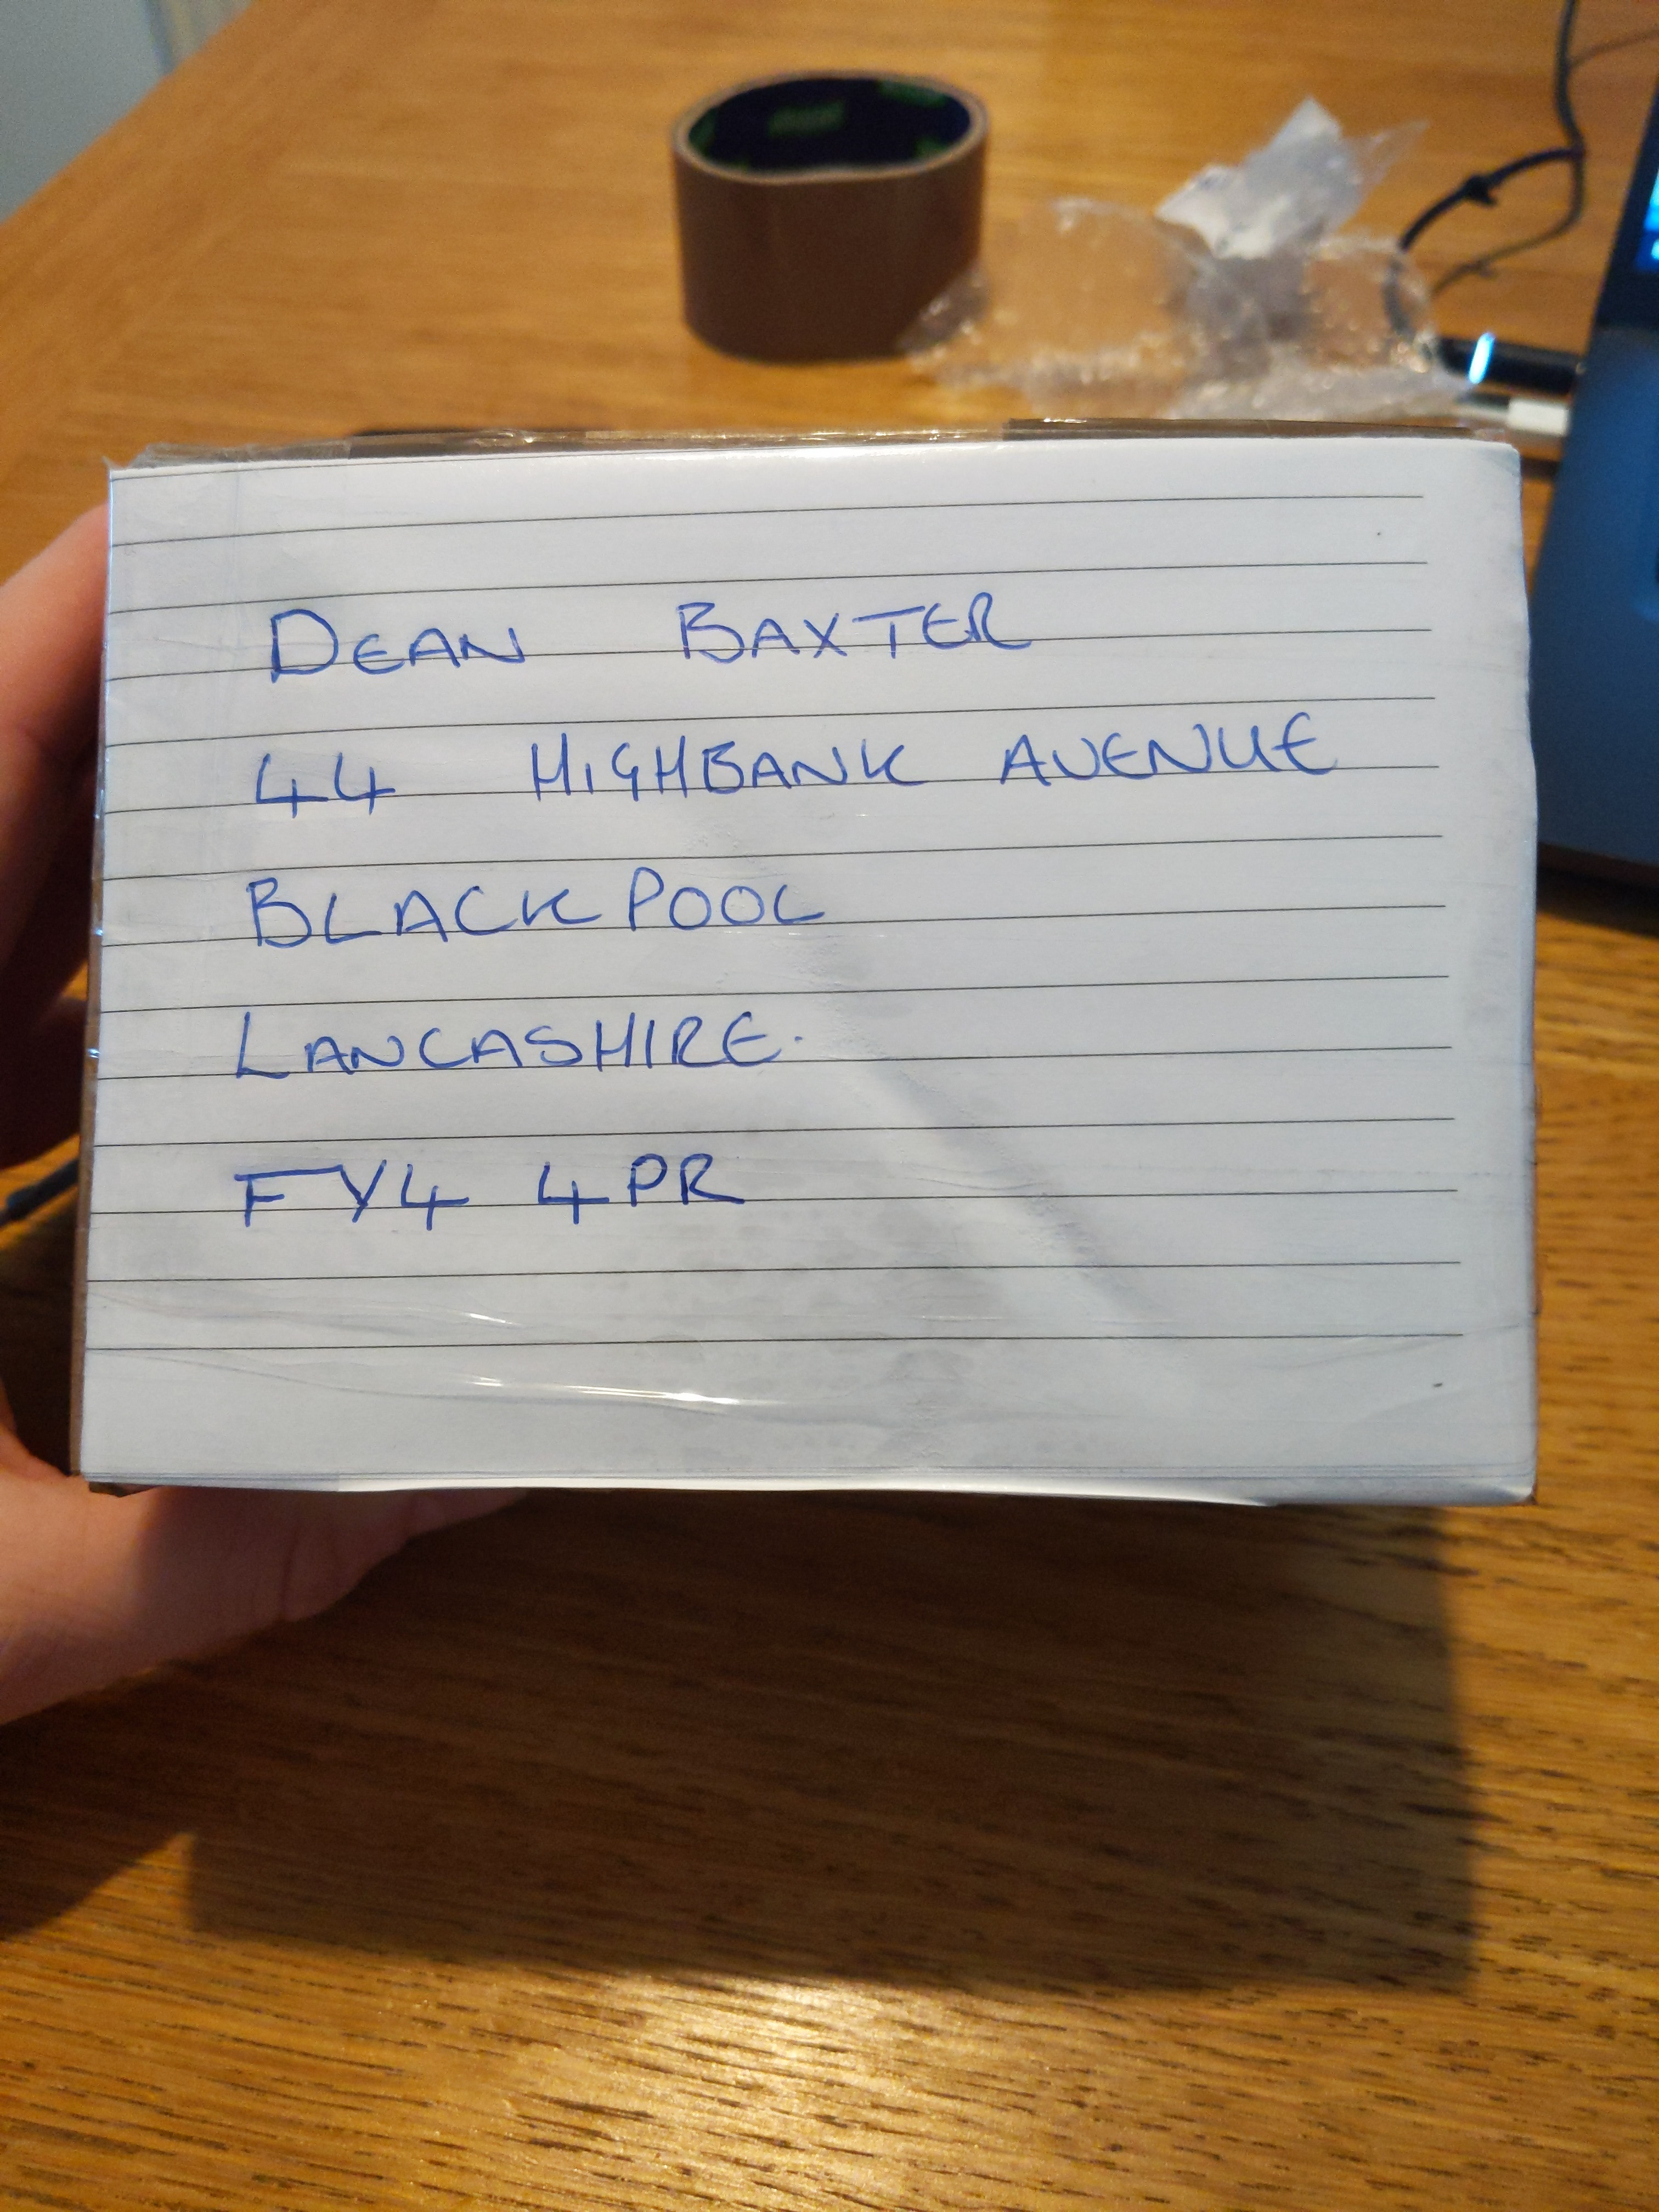 DEAN BAXTER
44 HIGHBANK AVENUE
BLACKPOOL
LANCASHIRE.
FY4 4PR